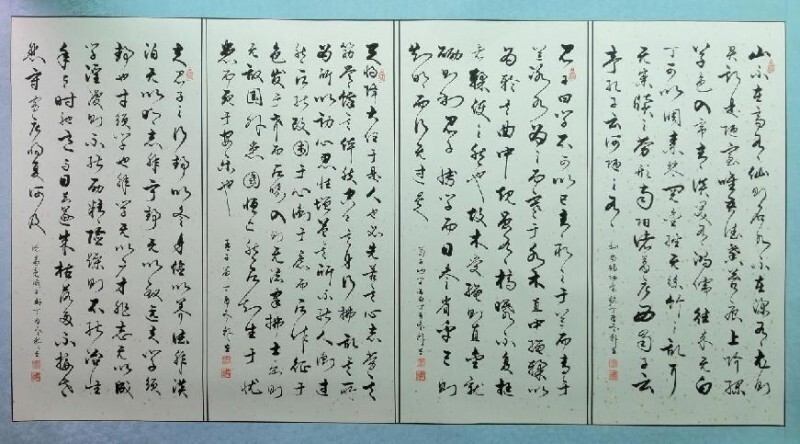 山不在高有仙则名水不在深有龙则
灵斯是陋室唯吾德馨苔痕上阶绿
草色入帘青谈笑有鸿儒往来无白
丁可以调素琴阅金经无丝竹之乱耳
无案牍之劳形南阳诸葛庐西蜀子云
亭孔子云何陋之有
君子曰学不可以已青取之于蓝而青于
蓝冰水为之而寒于水木直中绳輮以
为轮其曲中规虽有槁曝不复挺
者輮使之然也故木受绳则直金就
砺则利君子博学而日参省乎己则
知明而行无过矣
天将降大任于是人也必先苦其心志劳其
筋骨饿其体肤空乏其身行拂乱其所
为所以动心忍性增益其所不能人恒过
然后能改困于心衡于虑而后作征于
色发于声而后喻入则无法家拂士出则
无敌国外患国恒亡然后知生于忧
患而死于安乐也
夫君子之行静以修身俭以养德非淡
泊无以明志非宁静无以致远夫学须
静也才须学也非学无以广才非志无以成
学淫慢则不能励精险躁则不能治性
年与时驰意与日去遂成枯落多不接世
悲守穷庐将复何及